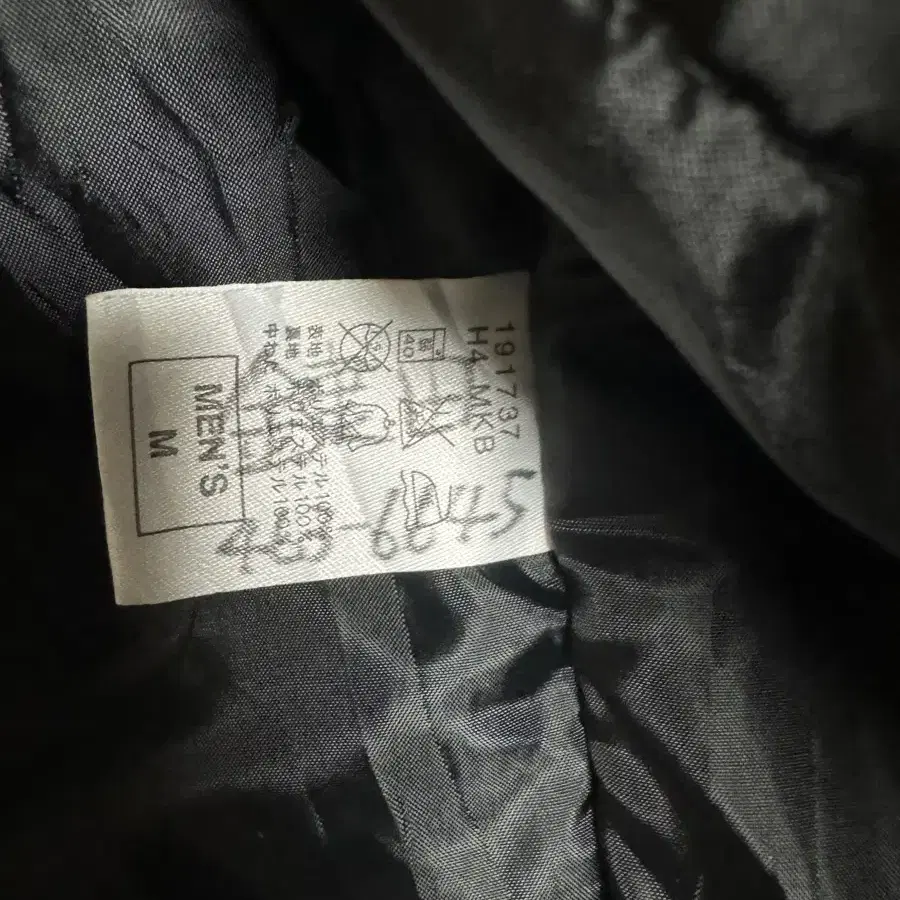 191737
H4 MKB
弱
40
表地 ポリエステル100%
裏地 ポリエステル100%
中わた ポリエステル100%
MEN'S
M